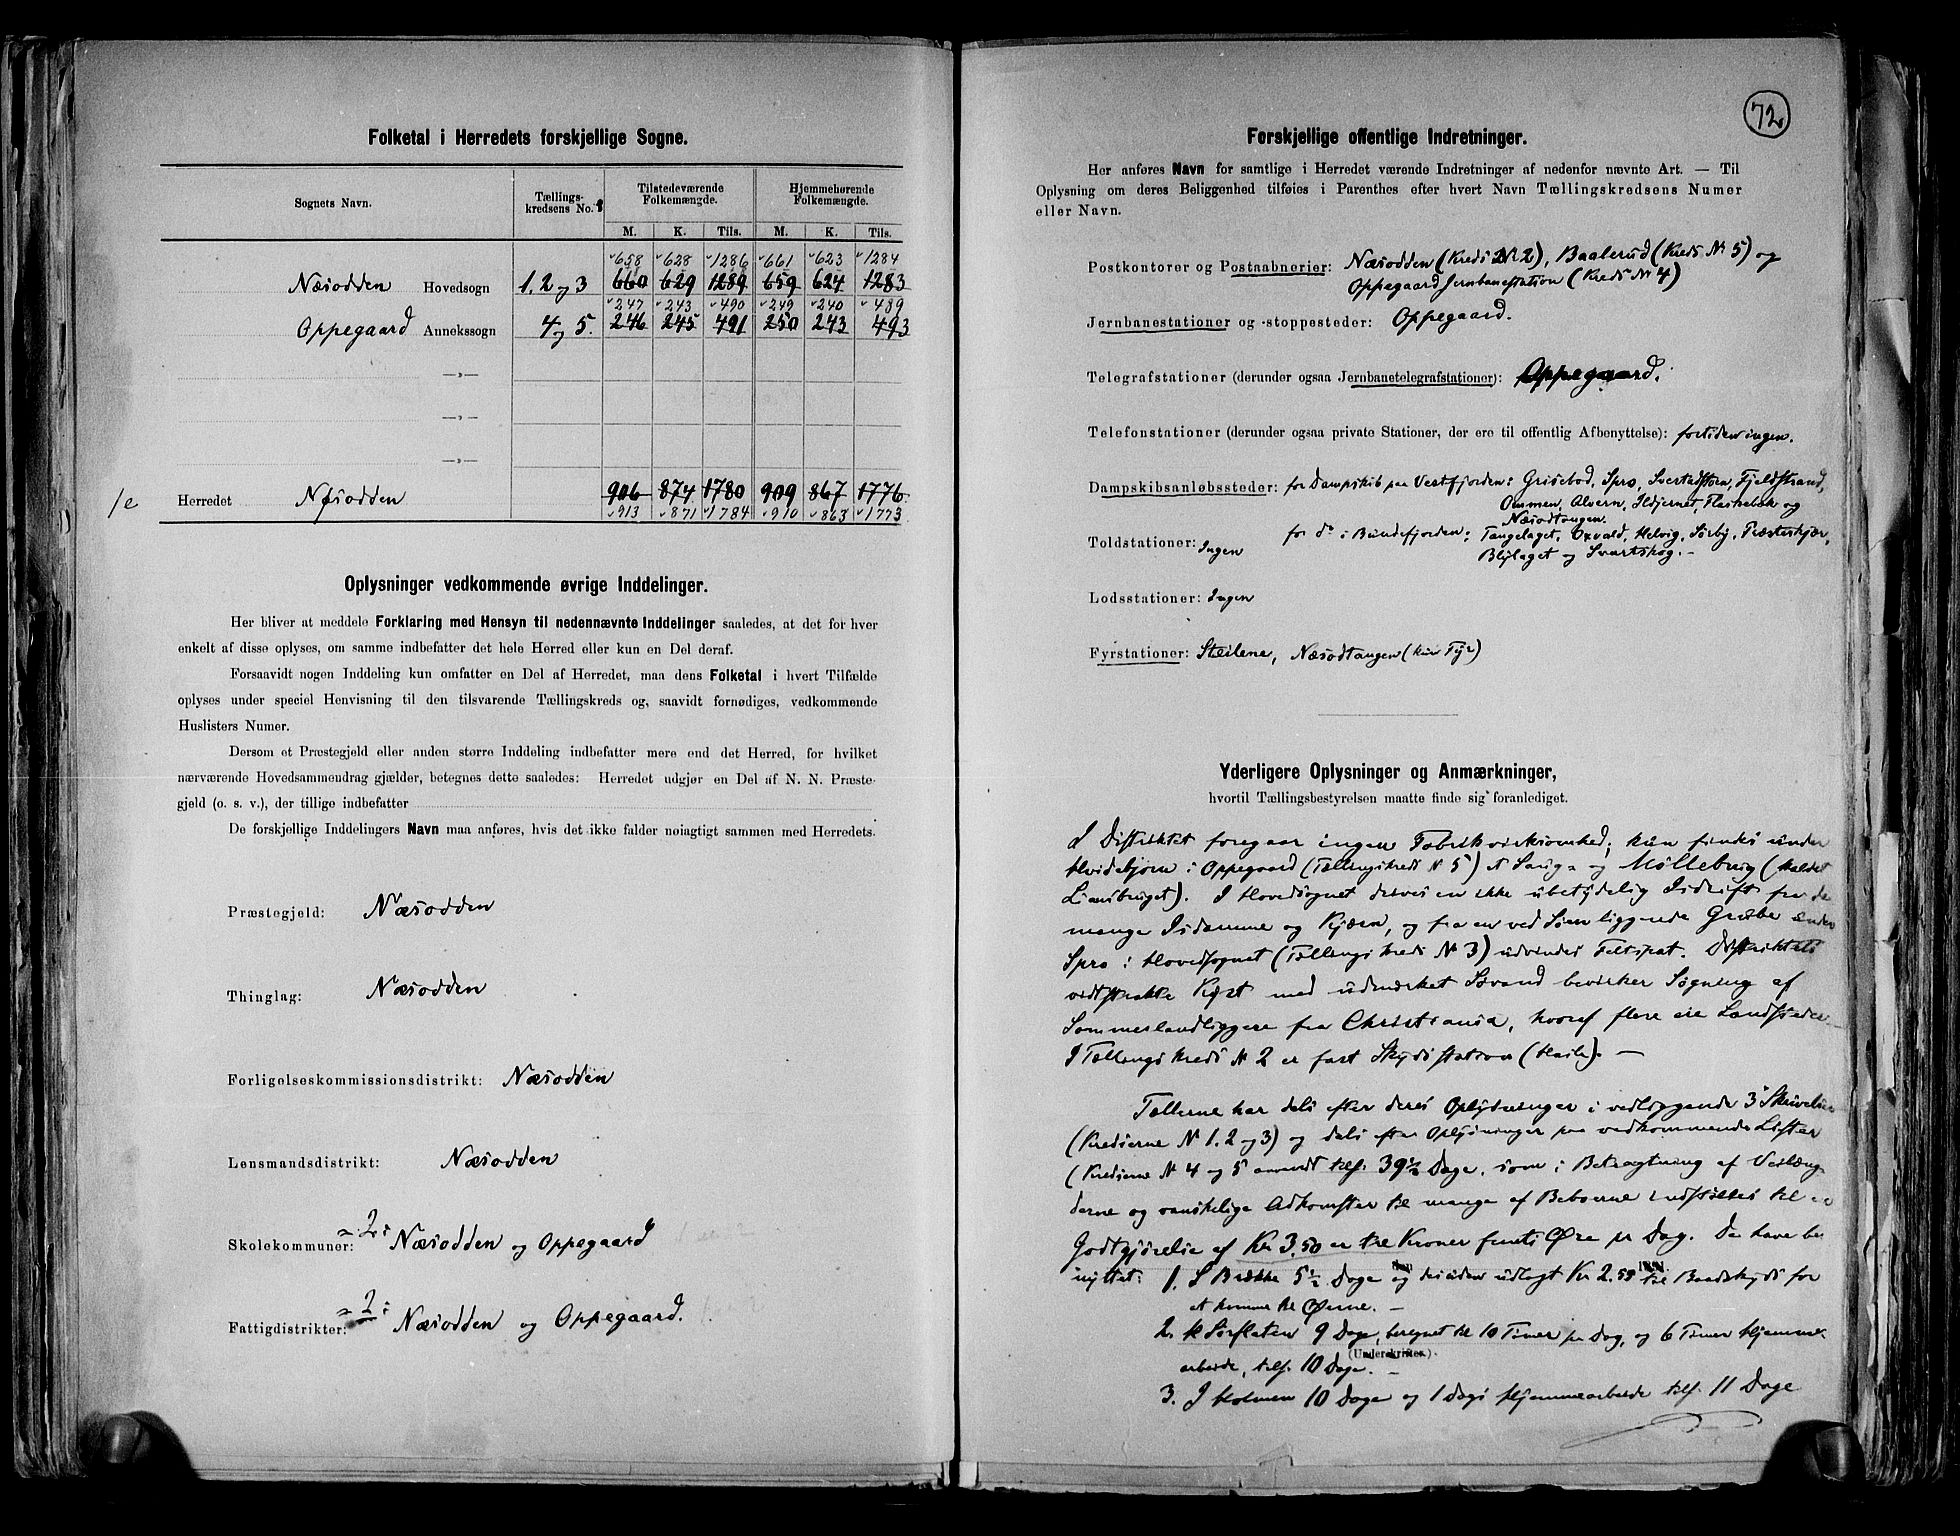 Folketal i Herredets forskjellige Sogne.
Sognets Navn. Tællings-kredsens No. Tilstedeværende Folkemængde. Hjemmehørende Folkemængde.
M. K. Tils. M. K. Tils.
658 628 1286 661 623 1284
Næsodden Hovedsogn 1, 2 og 3 660 629 1289 659 624 1283
247 243 490 249 240 489
Oppegaard Annekssogn 4 og 5. 246 245 491 250 243 493
—„—
—„—
—„—
1e Herredet Næsodden 906 874 1780 909 867 1776
913 871 1784 910 863 1773
Oplysninger vedkommende øvrige Inddelinger.
Her bliver at meddele Forklaring med Hensyn til nedennævnte Inddelinger saaledes, at det for hver
enkelt af disse oplyses, om samme indbefatter det hele Herred eller kun en Del deraf.
Forsaavidt nogen Inddeling kun omfatter en Del af Herredet, maa dens Folketal i hvert Tilfælde
oplyses under speciel Henvisning til den tilsvarende Tællingskreds og, saavidt fornødiges, vedkommende
Huslisters Numer.
Dersom et Præstegjeld eller anden større Inddeling indbefatter mere end det Herred, for hvilket
nærværende Hovedsammendrag gjælder, betegnes dette saaledes: Herredet udgjør en Del af N. N. Præste-
gjeld (o. s. v.), der tillige indbefatter
De forskjellige Inddelingers Navn maa anføres, hvis det ikke falder nøiagtigt sammen med Herredets.
Præstegjeld: Næsodden
Thinglag: Næsodden
Forligelseskommissionsdistrikt: Næsodden
Lensmandsdistrikt: Næsodden
Skolekommuner: 2: Næsodden og Oppegaard
Fattigdistrikter: 2: Næsodden og Oppegaard.
72
Forskjellige offentlige Indretninger.
Her anføres Navn for samtlige i Herredet værende Indretninger af nedenfor nævnte Art. — Til
Oplysning om deres Beliggenhed tilføies i Parenthes efter hvert Navn Tællingskredsens Numer
eller Navn.
Postkontorer og Postaabnerier: Næsodden (Kreds N 2), Baalerud (Kreds N 5) og
Oppegaard Jernbanestation (Kreds N 4)
Jernbanestationer og -stoppesteder: Oppegaard.
Telegrafstationer (derunder ogsaa Jernbanetelegrafstationer): Oppegaard.
Telefonstationer (derunder ogsaa private Stationer, der ere til offentlig Afbenyttelse): fortiden ingen.
Dampskibsanløbssteder: for Dampskib paa Vestfjorden: Grisebod, Spro, Svestadstrn, Fjeldstrand,
Ommen, Alvern, Ildjernet, Flaskebæk og
Næsodtangen.
for d° i Bundefjorden: Tangelaget, Oxvald, Helvig, Sørby, Præsteskjær,
Toldstationer: Ingen
Blylaget og Svartskog. -
Lodsstationer: Ingen
Fyrstationer: Steilene, Næsodtangen (kun Fyr)
Yderligere Oplysninger og Anmærkninger,
hvortil Tællingsbestyrelsen maatte finde sig foranlediget.
I Distriktet foregaar ingen Fabrikvirksomhed; kun findes under
Hvidebjørn i Oppegaard (Tællingskreds N 5) et Saug- og Møllebrug (kaldet
Liansbruget). I Hovedsognet drives en ikke ubetydelig Isdrift fra de
mange Isdamme og Kjærn, og fra en ved Søen liggende Grube under
Spro i Hovedsognet (Tællings kreds N 3) udvindes Feltspat. Distriktets
vidtstrakte Kyst med udmærket Søvand bevirker Søgning af
Sommerlandliggere fra Christiania, hvoraf flere eie Landsteder. —
I Tællings kreds N 2 er fast Skydsstation (Haile). —
Tællerne har dels efter deres Oplysninger i vedliggende 3 Skrivelser
(Kredserne N 1. 2 og 3) og dels efter Oplysninger paa vedkommende Lister
(Kredserne N 4 og 5 anvendt tils. 39½ Dage, som i Betragtning af Veilæng-
derne og vanskelige Adkomster til mange af Beboerne indstilles til en
Godtgjørelse af Kr 3.50 er tre Kroner femti Øre pr Dag. De have be-
nyttet: 1. S Brække 5½ Dage og desuden udlagt Kr 2.59 til Baadskyds for
at komme til Øerne. —
2. K Sørflaten 9 Dage, beregnet til 10 Timer pr Dag, og 6 Timer Hjemme-
(Underskrifter.)
arbeide, tils. 10 Dage. —
3. J Holmen 10 Dage og 1 Dags Hjemmearbeide tils. 11 Dage